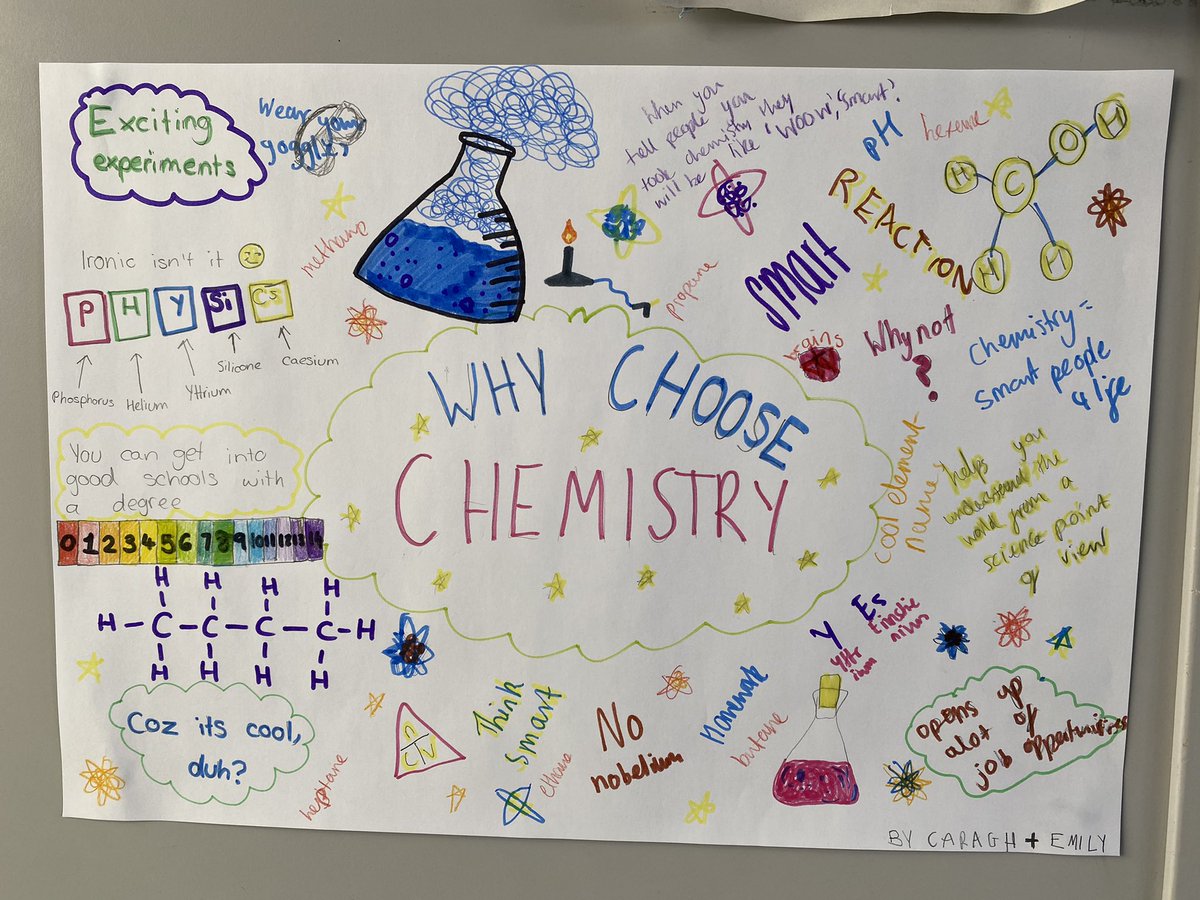 Exciting
experiments
Wear your
goggles
When you
tell people you
took chemistry they
will be like 'WOOW, 'smart'.
pH
hexane
H
O
C
H
H
H
REACTION
methane
Ironic isn't it
P H Y Si Cs
Phosphorus
Helium
Yttrium
Silicone
Caesium
propane
smart
brains
Why not
?
Chemistry =
smart people
4 life
WHY CHOOSE
CHEMISTRY
You can get into
good schools with
a degree
0 1 2 3 4 5 6 7 8 9 10 11 12 13 14
cool element
names
helps you
understand the
world from a
science point
of view
H H H H
H-C-C-C-C-H
H H H H
Y
Yttr
ium
Es
Einstie
nium
Coz its cool,
duh?
heptane
n
C V
Think
smart
ethane
No
nobelium
butane
opens up
alot of
job opportunities
BY CARAGH + EMILY